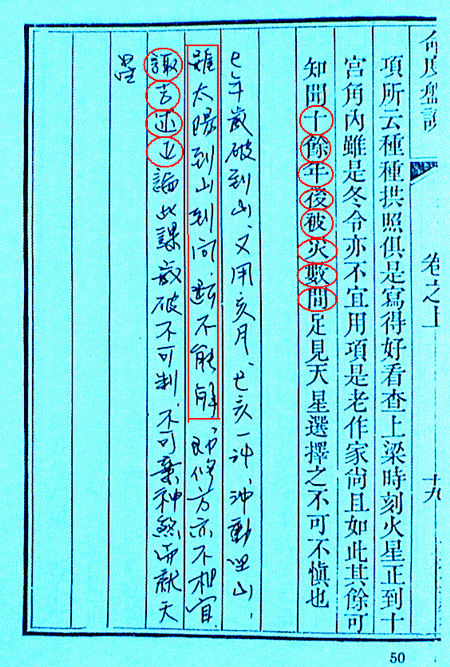 命度盤說 卷之上 十九
項所云種種拱照俱是寫得好看查上梁時刻火星正到十
宮角內雖是冬令亦不宜用項是老作家尙且如此其餘可
知聞十餘年後被火數間足見天星選擇之不可不慎也
巳年歲破到山、又用亥月、巳亥一沖、沖動坐山,
雖太陽到山到向,斷不能解、即修方亦不相宜
諏吉述正論此課歲破不可制,不可棄神煞而就天
星
50